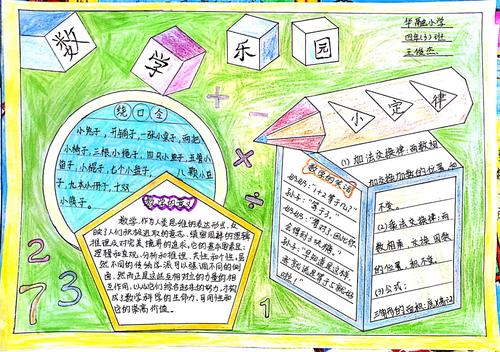 数
学
乐
园
华融小学
四年(3)班
王俊杰
小定律
绕口令
小兔子,开铺子,一张小桌子,两把
小椅子,三根小绳子,四只小匣子,五管小
笛子,六根小棍子,七个小盘子,八颗小豆
子,九本小册子,十双
小筷子。
数学的意义
数学,作为人类思维的表达形式,反
映了人们积极进取的意志、缜密周详的逻辑
推理及对完美境界的追求,它的基本要素是:
逻辑和直观、分析和推理、共性和个性。虽
然不同的传统学派可以强调不同的侧
面,然而正是这些互相对立的力量的相
互作用,以及它们综合起来的努力,才构
成了数学科学的生命力、可用性和
它的崇高价值。
数学的笑话
妈妈:"1+2等于几?"
孙子:"等于3。
(1)加法交换律:两数相
加交换加数的位置,和
不变。
(2)乘法交换律:两
数相乘,交换因数
的位置,积不变。
(3)公式:
三角形的面积:底×高÷2
+
−
×
÷
2
7
3
1